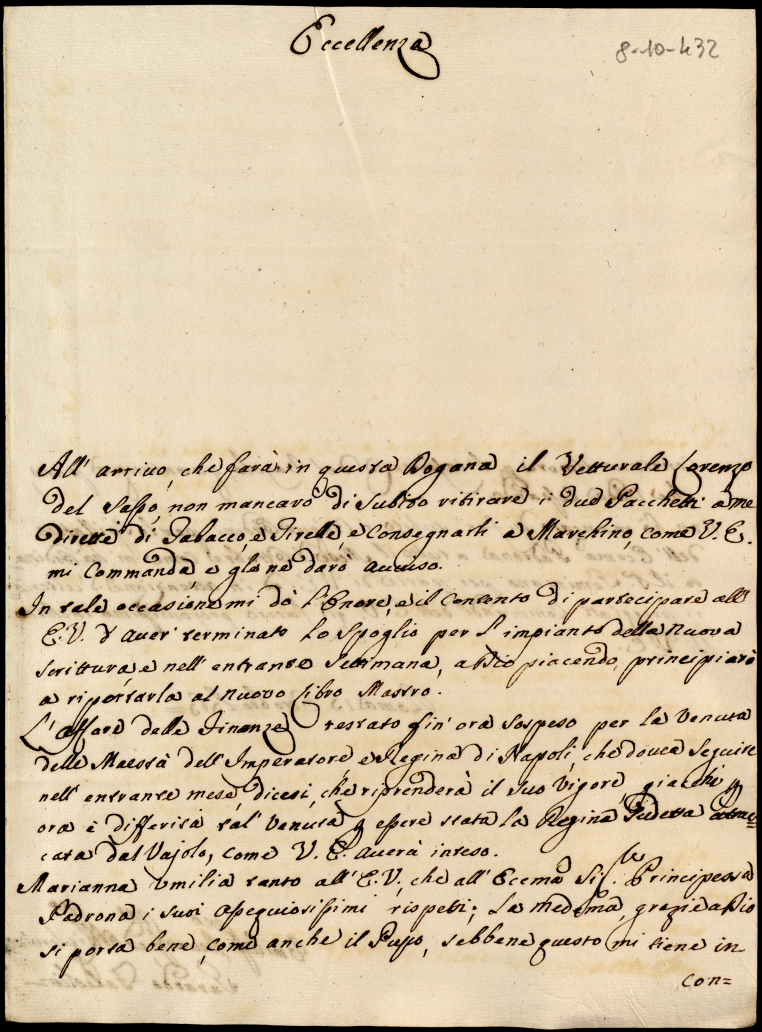 Eccellenza
8-10-432
All' arrivo, che farà in questa Dogana il Vetturale Lorenzo
del Sasso, non mancarò di subito ritirare i due Pacchetti a me
diretti di Tabacco, e Tirelle, e consegnarli a Marchino, come V. E.
mi commanda, e gle ne darò auuiso.
In tale occasione mi dò l'Onore, e il contento di partecipare all'
E.V. d'auer terminato lo spoglio per l'impianto della nuova
scrittura, e nell' entrante settimana, a Dio piacendo, principiarò
a riportarla al nuovo Libro Mastro.
L'affare delle Finanze restato fin' ora sospeso per la venuta
delle Maestà dell' Imperatore e Regina di Napoli, che doueua seguire
nell' entrante mese, dicesi, che riprenderà il suo vigore, giacchè p
ora è differita tal' venuta p essere stata la Regina sudetta attac=
cata dal Vajolo, come V. E. auerà inteso.
Marianna umilia tanto all' E.V., che all' Eccma Sig.ra Principessa
Padrona i suoi ossequiosissimi rispetti; la medema, grazie a Dio
si porta bene, come anche il Puppo, sebbene questo mi tiene in
con=